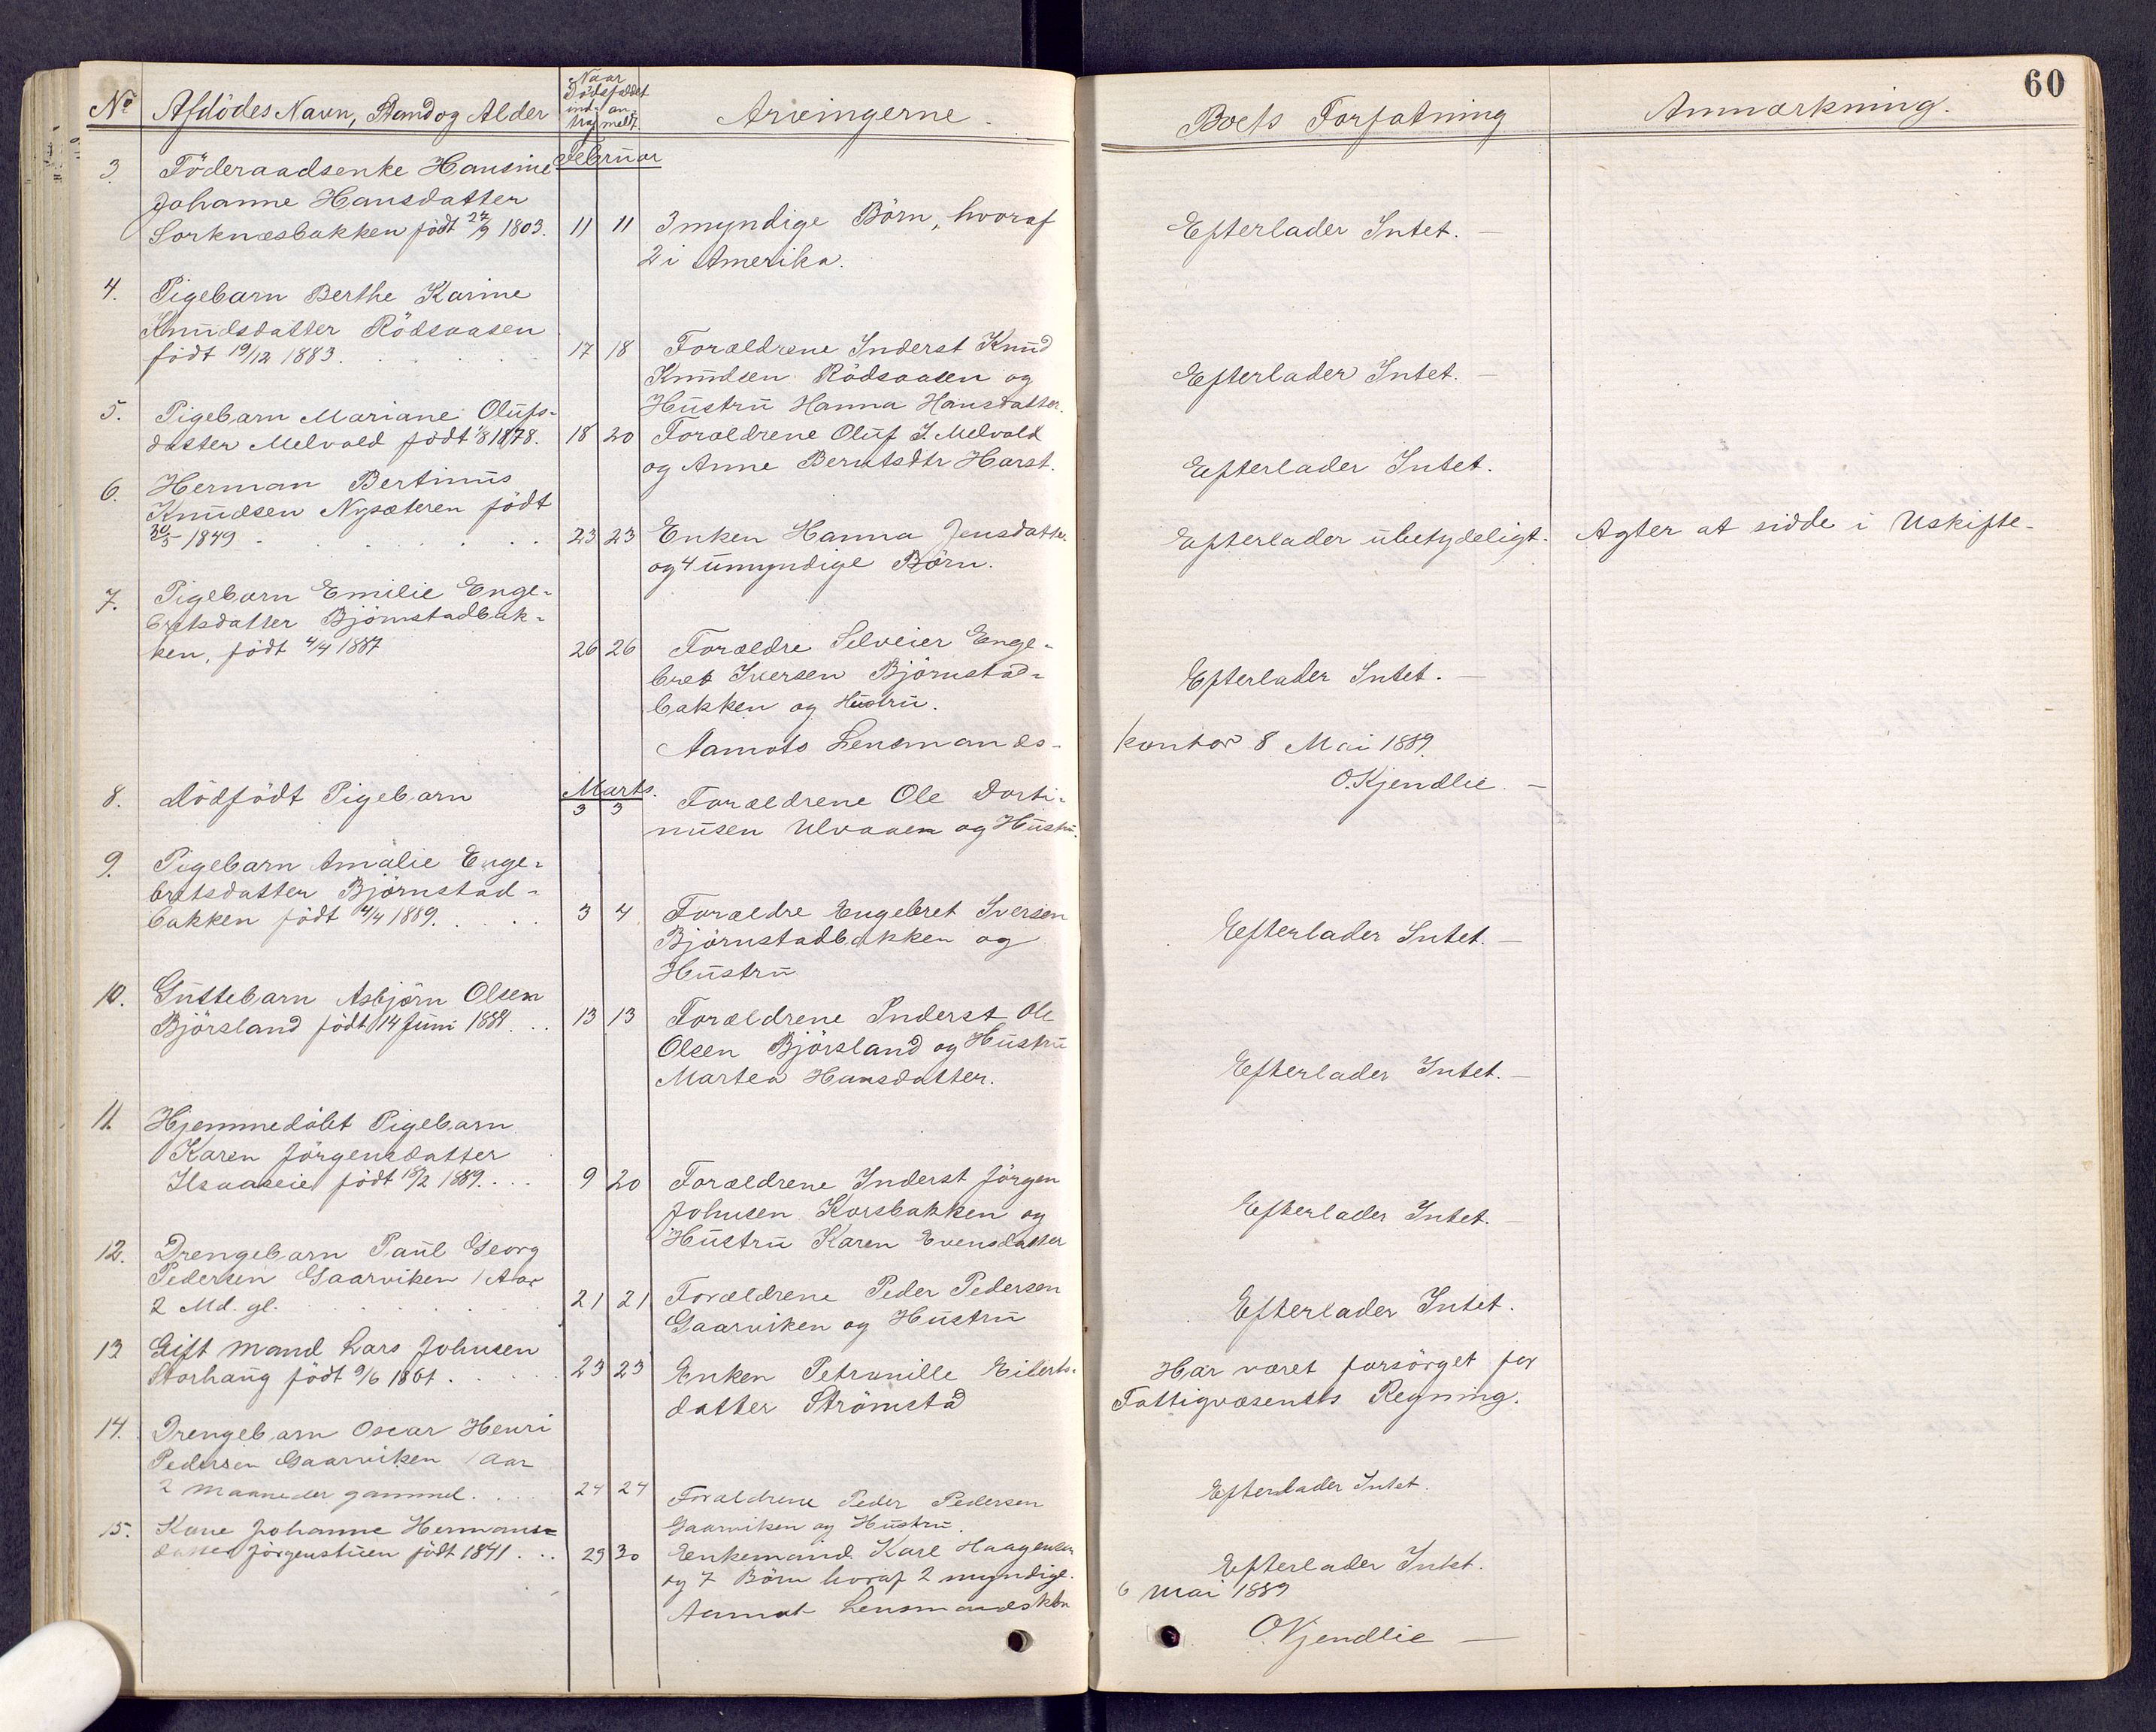 60
No Afdödes Navn, Stand og Alder
Naar
Dödsfaldet
ind- an-
traf meldt.
Arvingerne.
Boets Forfatning
Anmærkning.
Februar
3. Föderaadsenke Hansine
Johanne Hansdatter
Sorknæsbakken födt 27/9 1803. 11 11 3 myndige Börn, hvoraf
2 i Amerika.
Efterlader Intet. —
4. Pigebarn Berthe Karine
Knudsdatter Rödsaasen
födt 19/12 1883. 17 18 Forældrene Inderst Knud
Knudsen Rödsaasen og
Hustru Hanna Hansdatter.
Efterlader Intet. —
5. Pigebarn Mariane Olufs-
datter Melvold födt 1/8 1878. 18 20 Forældrene Oluf J. Melvold
og Anne Berntsdtr Harst.
Efterlader Intet.
6. Herman Bertinus
Knudsen Nysæteren födt
30/5 1849 23 23 Enken Hanna Jensdatter
og 4 umyndige Börn.
Efterlader ubetydeligt. Agter at sidde i Uskifte.
7. Pigebarn Emilie Enge-
bretsdatter Björnstadbak-
ken, födt 4/4 1887 26 26 Forældre Selveier Enge-
bret Iversen Björnstad-
bakken og Hustru.
Efterlader Intet. —
Aamots Lensmands-
kontor 8 Mai 1889.
O. Kjendlie. —
Marts.
8. Dödfödt Pigebarn 3 3 Forældrene Ole Dorti-
nusen Ulvaaen og Hustru.
9. Pigebarn Amalie Enge-
bretsdatter Björnstad-
bakken födt 4/4 1889. 3 4 Forældre Engebret Iversen
Björnstadbakken og
Hustru
Efterlader Intet. —
10. Guttebarn Asbjörn Olsen
Björsland födt 14 Juni 1888. 13 13 Forældrene Inderst Ole
Olsen Björsland og Hustru
Martea Hansdatter.
Efterlader Intet. —
11. Hjemmedöbt Pigebarn
Karen Jörgensdatter
födt 18/2 1889. 9 20 Forældrene Inderst Jörgen
Johnsen Korsbakken og
Hustru Karen Evensdatter
Efterlader Intet. —
12. Drengebarn Paul Georg
Pedersen Gaarviken 1 Aar
2 Md. gl. 21 21 Forældrene Peder Pedersen
Gaarviken og Hustru
Efterlader Intet.
13 Gift Mand Lars Johnsen
Storhaug födt 9/6 1861. 23 23 Enken Petronille Eilerts-
datter Strömstad
Har været forsörget for
Fattigvæsenets Regning.
14. Drengebarn Oscar Henri
Pedersen Gaarviken 1 Aar
2 Maaneder gammel. 24 24 Forældrene Peder Pedersen
Gaarviken og Hustru.
Efterlader Intet.
15. Kone Johanne Hermans-
datter Jörgenstuen födt 1841. 29 30 Enkemand Karl Haagensen
og 7 Börn hvoraf 2 myndige.
Efterlader Intet.
Aamot Lensmandsktr
6 Mai 1889
O. Kjendlie —